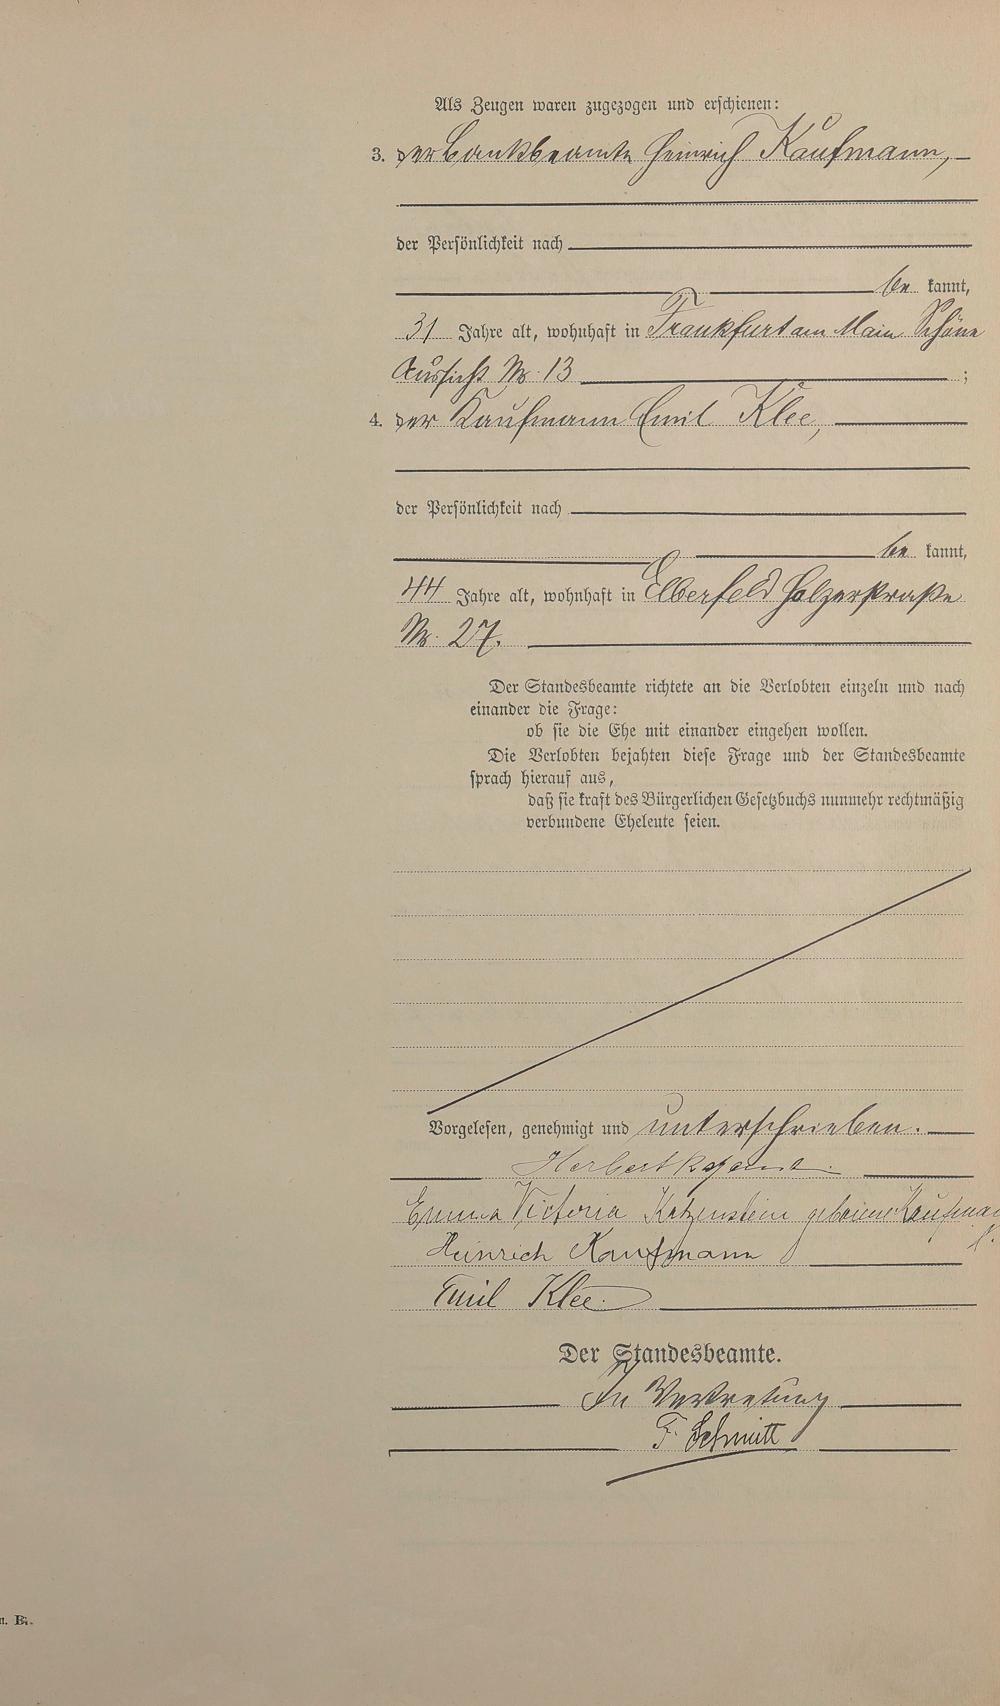 Als Zeugen waren zugezogen und erschienen:
3. der Bankbeamte Heinrich Kaufmann,
der Persönlichkeit nach
be kannt,
31 Jahre alt, wohnhaft in Frankfurt am Main Schöne
Aussicht Nr. 13 ;
4. der Kaufmann Emil Klee,
der Persönlichkeit nach
be kannt,
44 Jahre alt, wohnhaft in Elberfeld Holzerstraße
Nr. 27.
Der Standesbeamte richtete an die Verlobten einzeln und nach
einander die Frage:
ob sie die Ehe mit einander eingehen wollen.
Die Verlobten bejahten diese Frage und der Standesbeamte
sprach hierauf aus,
daß sie kraft des Bürgerlichen Gesetzbuchs nunmehr rechtmäßig
verbundene Eheleute seien.
Vorgelesen, genehmigt und unterschrieben.
Herbert Katzenstein
Emma Victoria Katzenstein geborene Kaufmann
Heinrich Kaufmann
Emil Klee.
Der Standesbeamte.
In Vertretung
F. Schmitt
B.